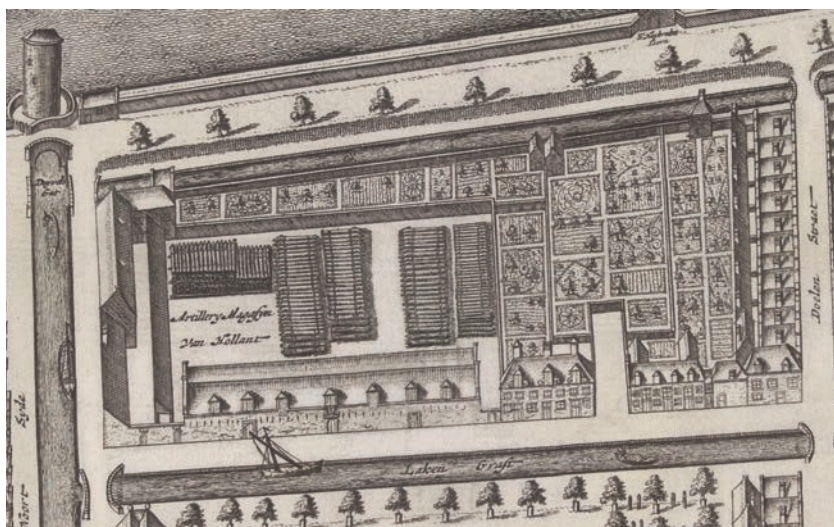 Artillery Magasyn
Van Hollant
Laken Graft
Doelen Straet
Noort Syde